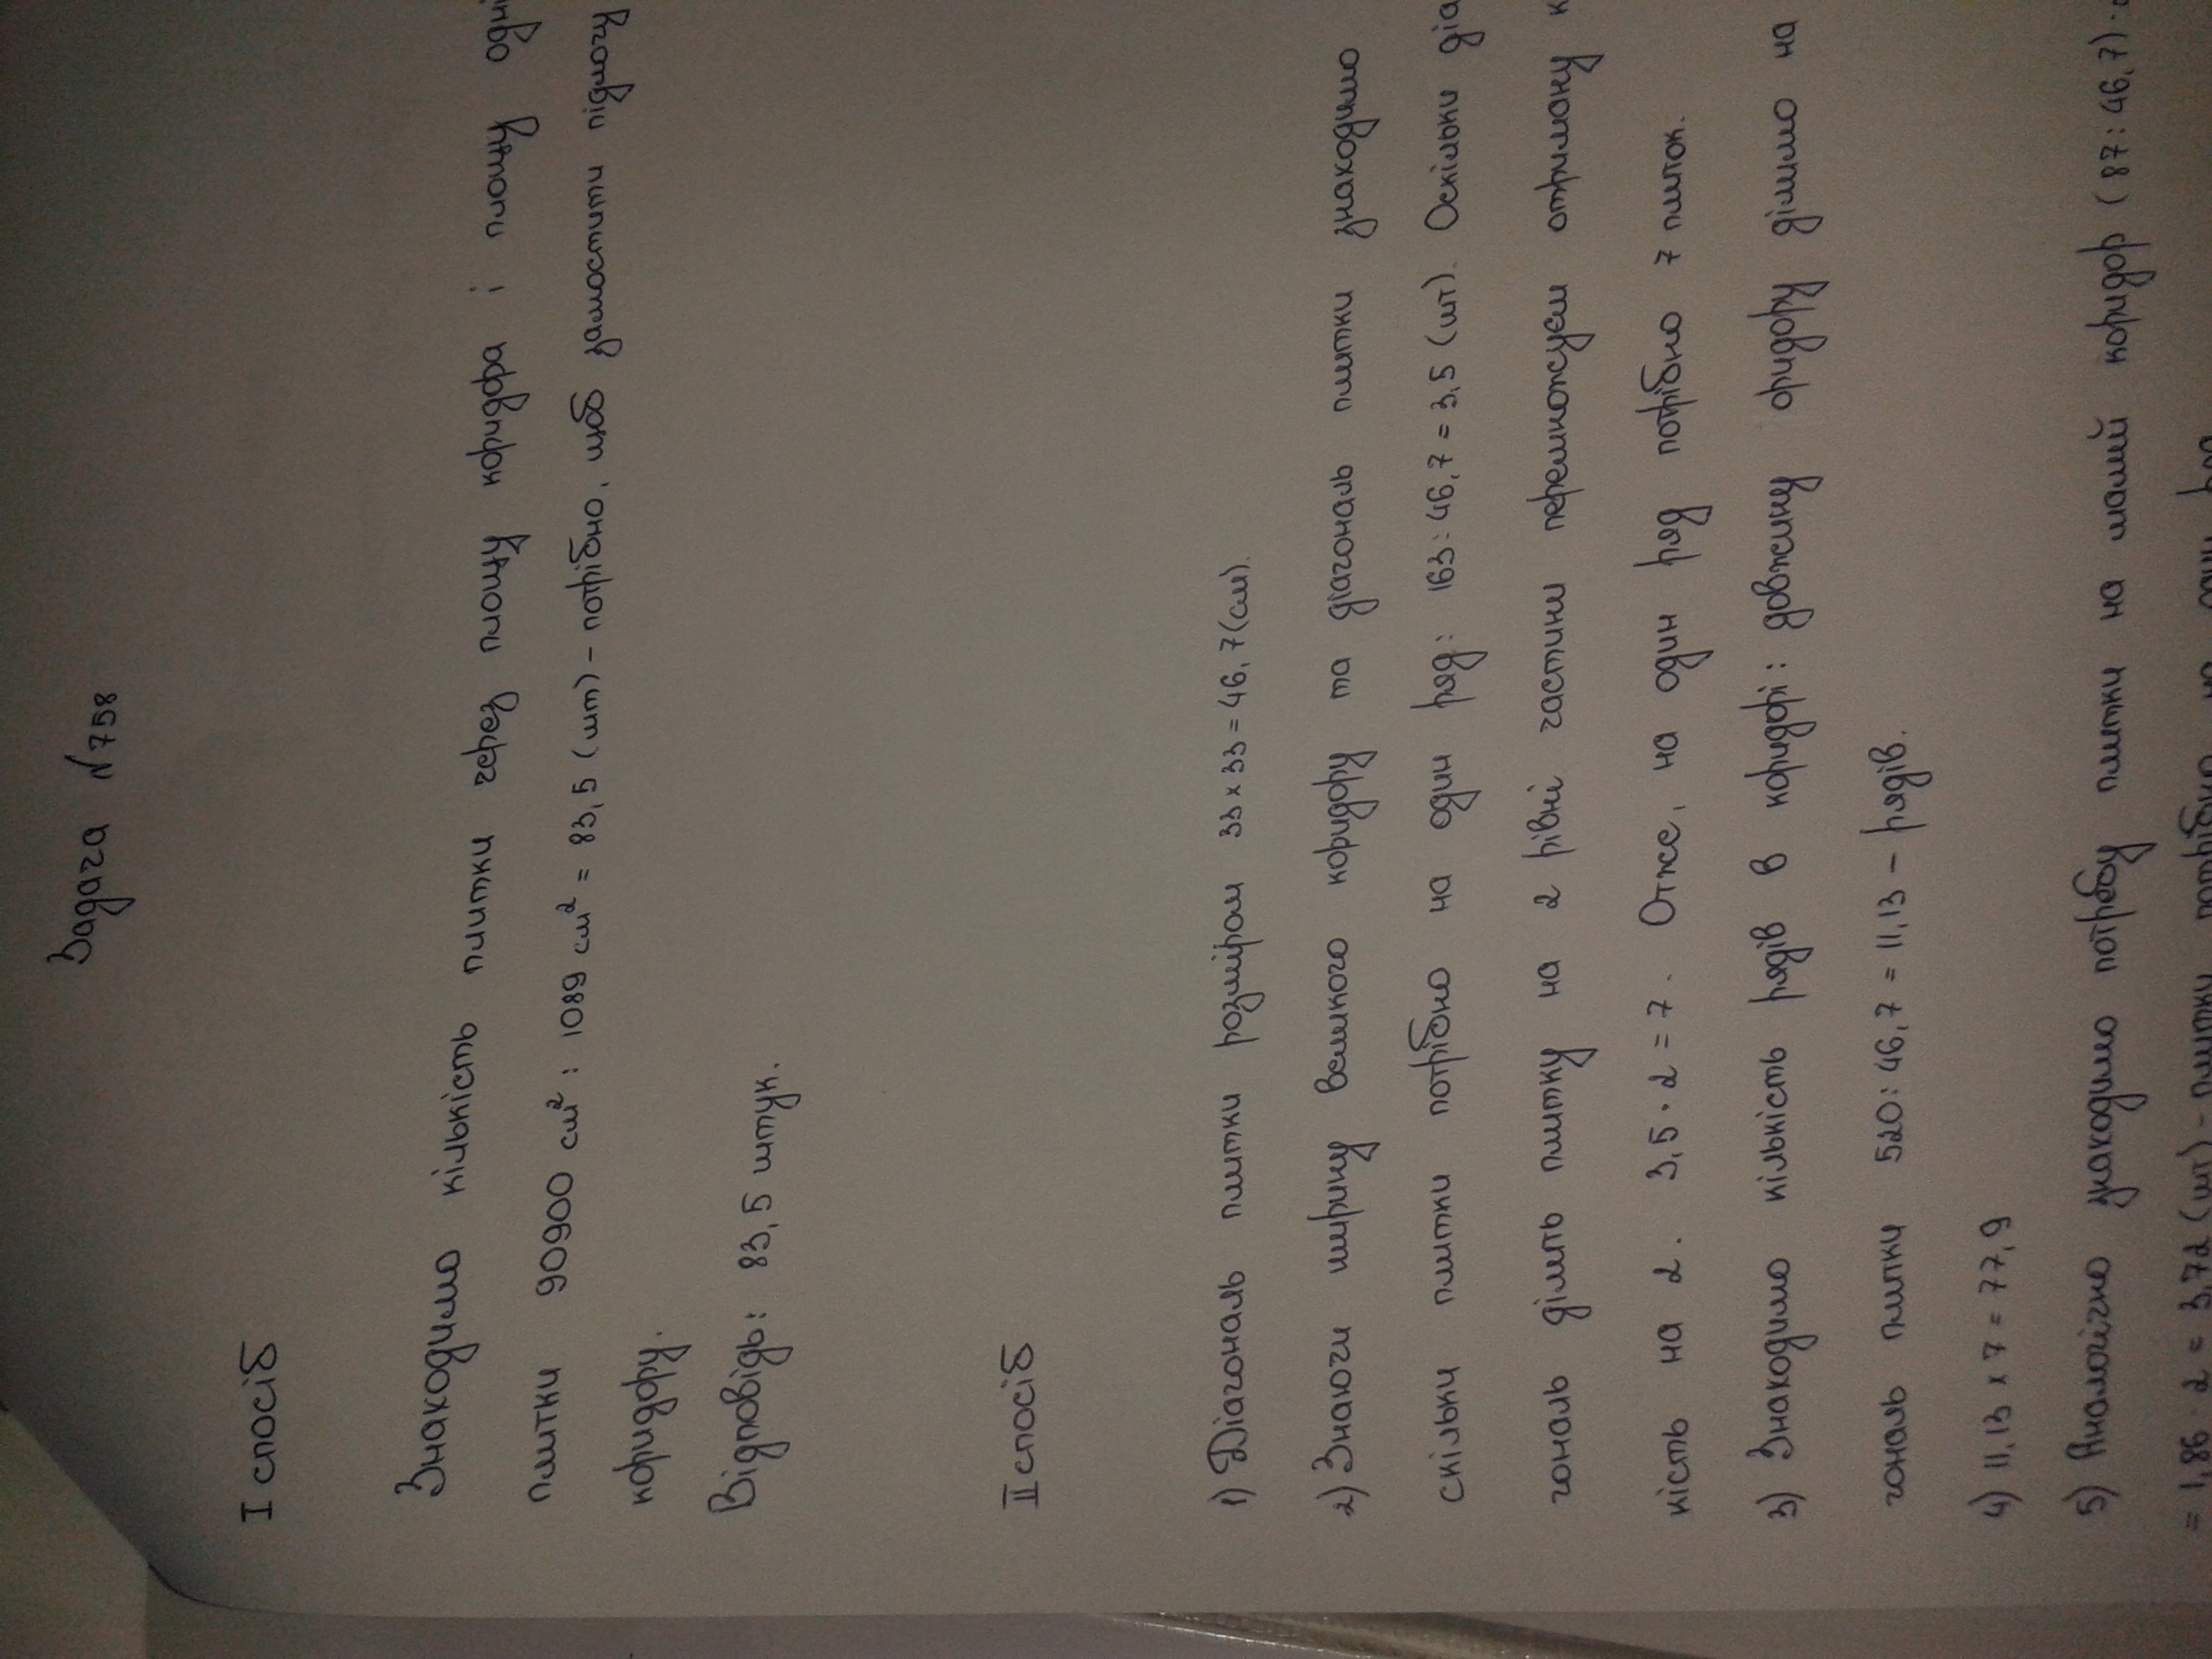 Задача №758
I спосіб
Знаходимо кількість плитки через площу коридора і площу одні
плитки 90900 см² : 1089 см² = 83,5 (шт) – потрібно, щоб замостити підлогу
коридору.
Відповідь: 83,5 штук.
II спосіб
1) Діагональ плитки розміром 33 x 33 = 46,7 (см).
2) Знаючи ширину великого коридору та діагональ плитки знаходимо
скільки плитки потрібно на один ряд: 163 : 46,7 = 3,5 (шт). Оскільки діа
гональ ділить плитку на 2 рівні частини перемножуєм отриману к
кість на 2. 3,5 · 2 = 7. Отже, на один ряд потрібно 7 плиток.
3) Знаходимо кількість рядів в коридорі: довжину оридору ділимо на
гональ плитки 520 : 46,7 = 11,13 – рядів.
4) 11,13 x 7 = 77,9
5) Аналогічно знаходимо потребу плитки на малий коридор (87 : 46,7) ·
= 1,86 · 2 = 3,72 (шт) – плитки потрібно на один ряд